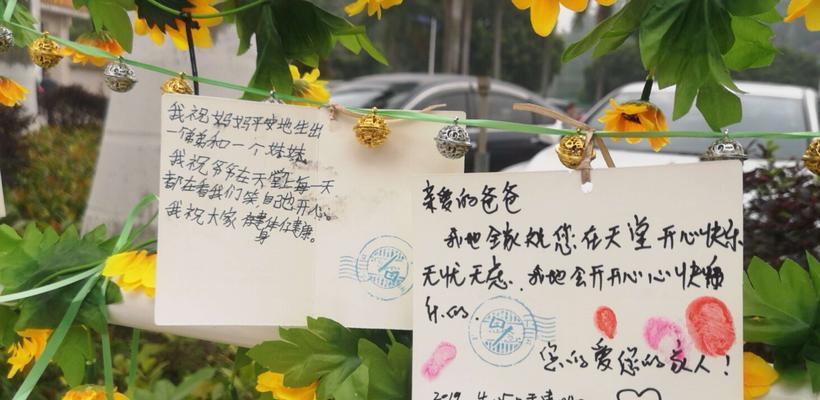 我祝妈妈平安地生出
一个弟弟和一个妹妹
我祝爷爷在天堂上每一天
都在看我们笑,自己也开心。
我祝大家身体健康。
亲爱的爸爸
我地全家祝您在天堂开心快乐
无忧无虑.我地会开开心心快
您的爱您的家人!
2019